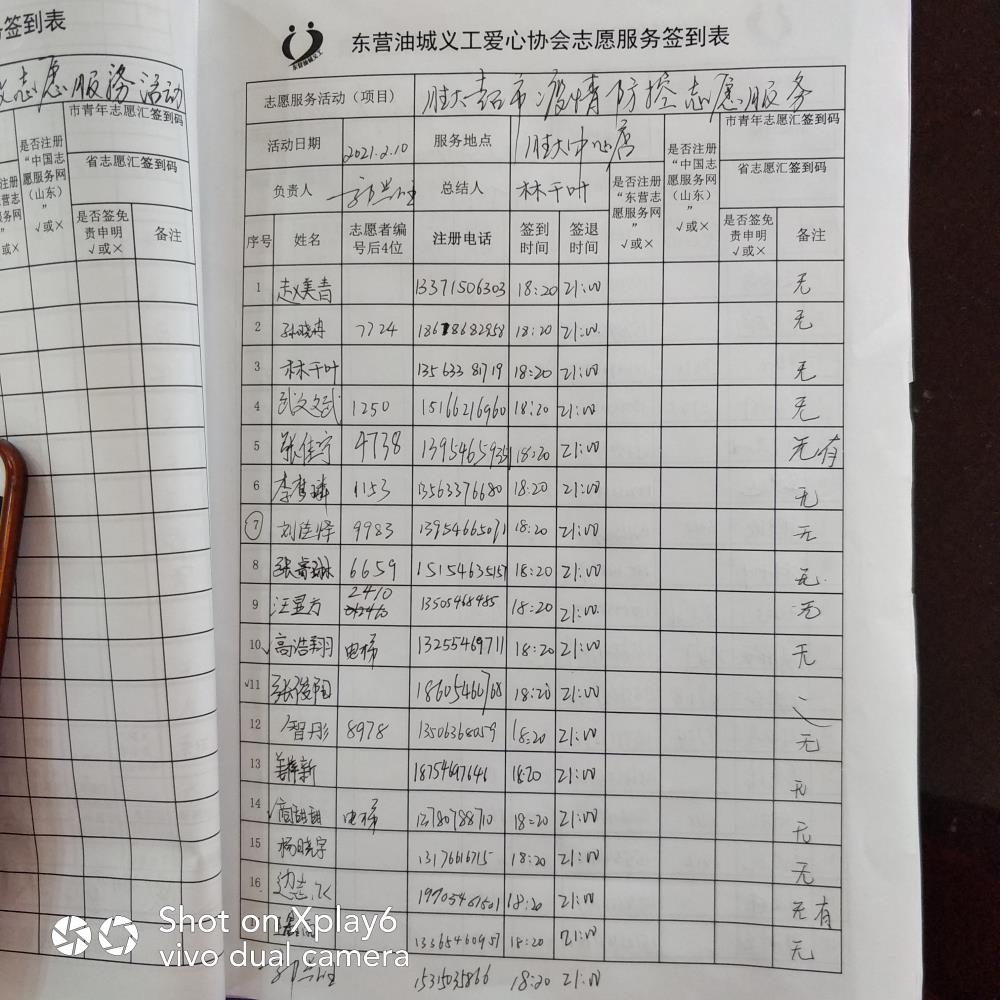 务签到表
志愿服務活动
市青年志愿汇签到码
省志愿汇签到码
是否注册“中国志愿服务网（山东）” √或×
是否签免责申明 √或×
备注
东营油城义工
东营油城义工爱心协会志愿服务签到表
志愿服务活动（项目） 胜大超市疫情防控志愿服务
活动日期 2021.2.10 服务地点 胜大中心店 是否注册“东营志愿服务网” √或× 是否注册“中国志愿服务网（山东）” √或× 市青年志愿汇签到码
省志愿汇签到码
负责人 总结人 林干叶
序号 姓名 志愿者编号后4位 注册电话 签到时间 签退时间 是否签免责申明 √或× 备注
1 赵美青 13371506303 18:20 21:00 无
2 孙晓冉 7724 18678682958 18:20 21:00 无
3 林干叶 13563381719 18:20 21:00 无
4 武文斌 1250 15166216960 18:20 21:00 无
5 张佳宁 4738 18:20 21:00 无有
6 李梦 1153 13563376680 18:20 21:00 无
7 9983 13954665071 18:20 21:00 无
8 6659 15154635157 18:20 21:00 无
9 汪显方 2410 13505468485 18:20 21:00 无
10 √ 高浩翔 电梯 13255469711 18:20 21:00 无
√11 张俊 18605460768 18:20 21:00
12 智彤 8978 13506368059 18:20 21:00 无
13 新 18754697646 18:20 21:00 无
14 √ 甜甜 电梯 18:20 21:00 无
15 杨晓宇 13176616715 18:20 21:00 无
16 边志 19705461501 18:20 21:00 无有
13365460957 18:20 21:00 无
15315035866 18:20 21:00
Shot on Xplay6
vivo dual camera